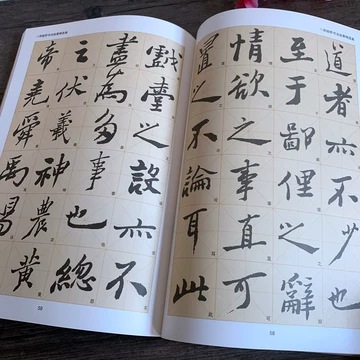 道者亦不少也
至于鄙俚之辭
情欲之事直可
置之不論耳此
戲臺之設亦不
盡為多事也總
之伏羲神農黃
帝堯舜禹